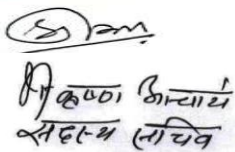 श्रीकृष्ण आचार्य
सदस्य सचिव